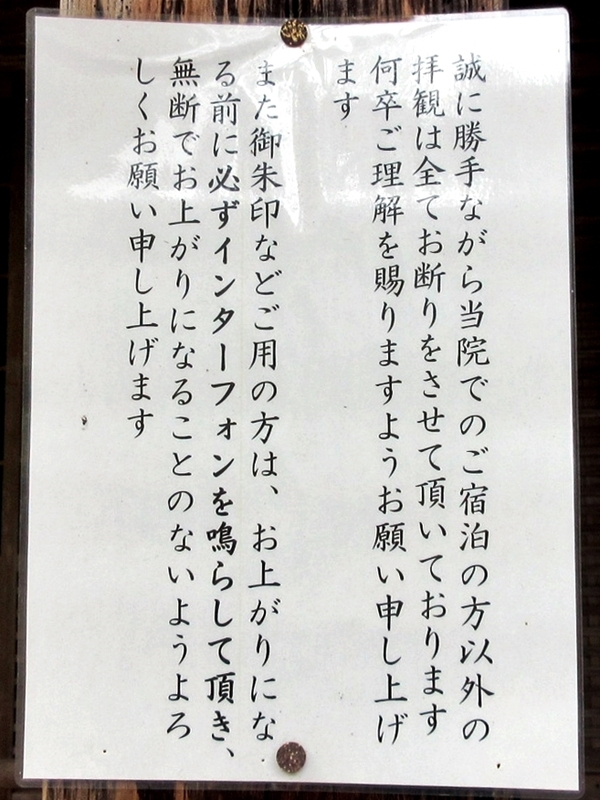 誠に勝手ながら当院でのご宿泊の方以外の
拝観は全てお断りをさせて頂いております
何卒ご理解を賜りますようお願い申し上げ
ます
また御朱印などご用の方は、お上がりにな
る前に必ずインターフォンを鳴らして頂き、
無断でお上がりになることのないようよろ
しくお願い申し上げます